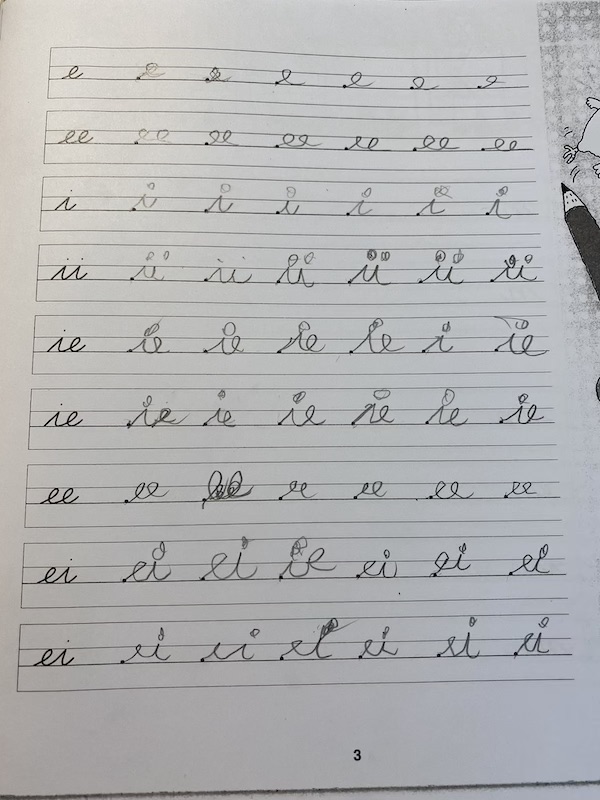 e e e e e e e
ee ee ee ee ee ee ee
i i i i i i i
ii ii ii ii ii ii ii
ie ie ie ie ie i ie
ie ie ie ie ie ie ie
ee ee ee ee ee ee
ei ei ei ie ei ei ei
ei ei ei ei ei ei ei
3